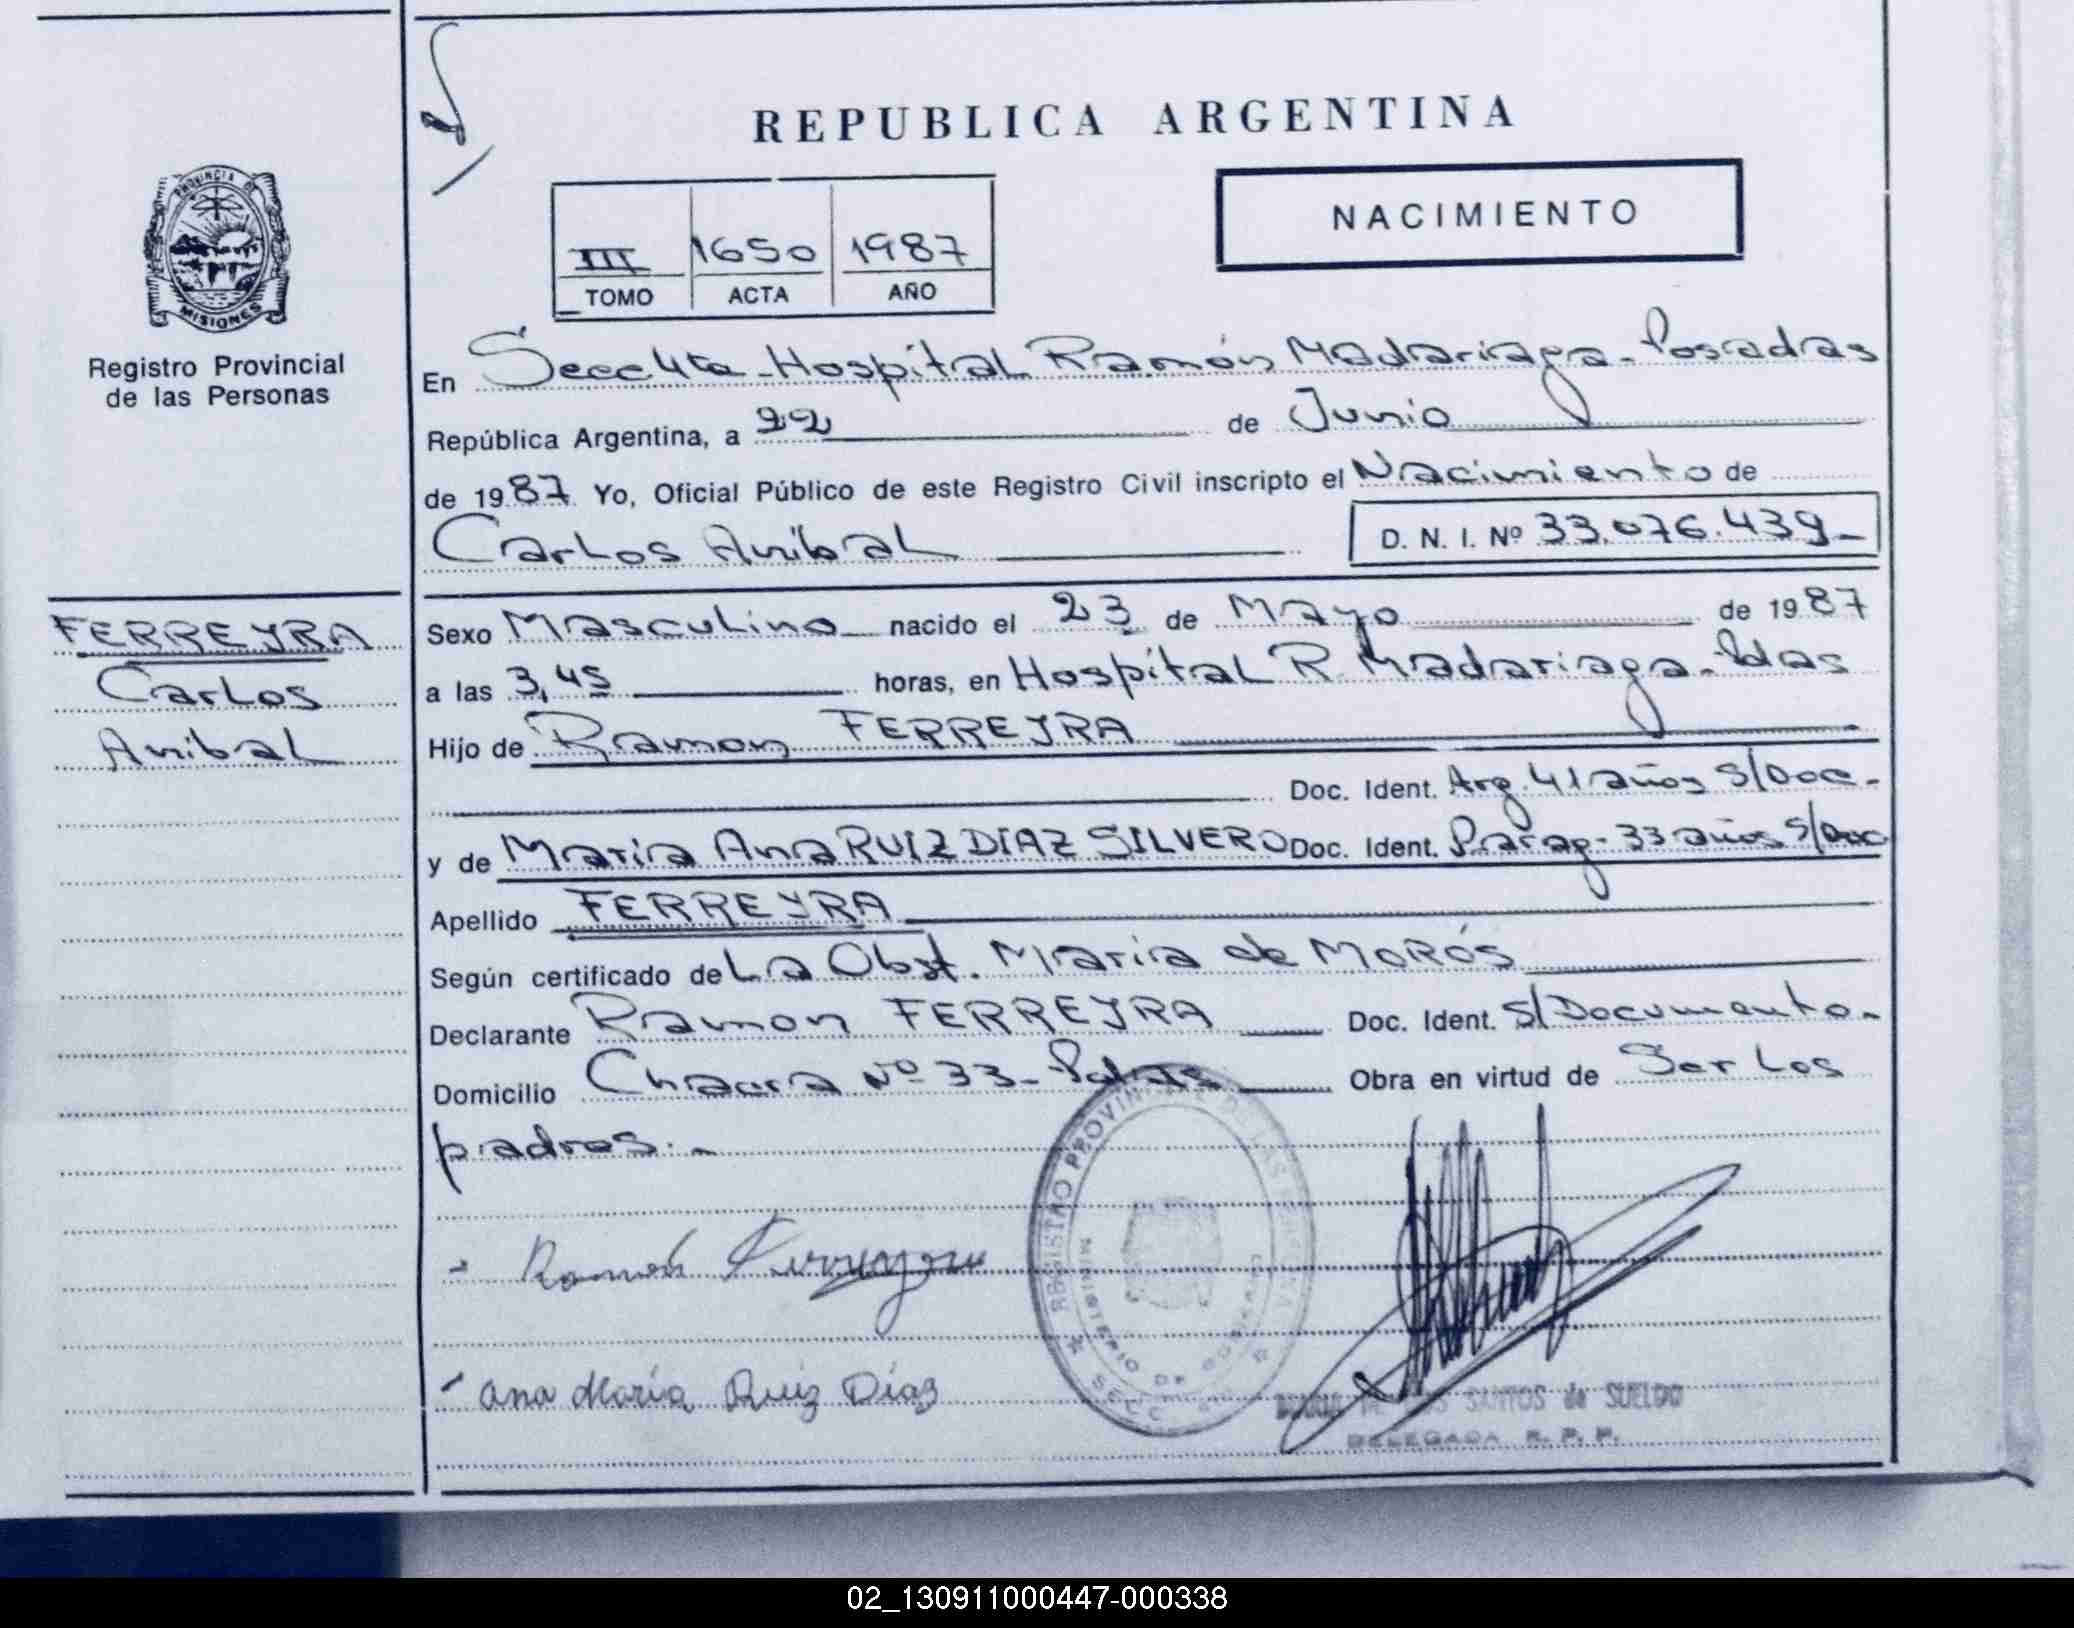 REPUBLICA ARGENTINA
NACIMIENTO
III 1650 1987
TOMO ACTA AÑO
PROVINCIA DE
MISIONES
Registro Provincial
de las Personas
En Secc 4ta - Hospital Ramón Madariaga - Posadas
República Argentina, a 22 de Junio
de 1987 Yo, Oficial Público de este Registro Civil inscripto el Nacimiento de
Carlos Anibal D. N. I. Nº 33.076.439-
FERREYRA
Carlos
Anibal
Sexo Masculino nacido el 23 de Mayo de 1987
a las 3,45 horas, en Hospital R. Madariaga - Pdas
Hijo de Ramon FERREYRA
Doc. Ident. Arg. 41 años S/Doc.-
y de María Ana RUIZ DIAZ SILVERO Doc. Ident. Parag- 33 años S/Doc
Apellido FERREYRA
Según certificado de La Obst. María de MORÓS
Declarante Ramon FERREYRA Doc. Ident. S/Documento.-
Domicilio Chacra Nº 33- Pdas Obra en virtud de Ser Los
padres.-
Ramón Ferreyra
Ana María Ruiz Díaz
REGISTRO PROVINCIAL DE LAS PERSONAS
MINISTERIO DE GOBIERNO
SECC
SANTOS de SUELDO
DELEGADA R. P. P.
02_130911000447-000338